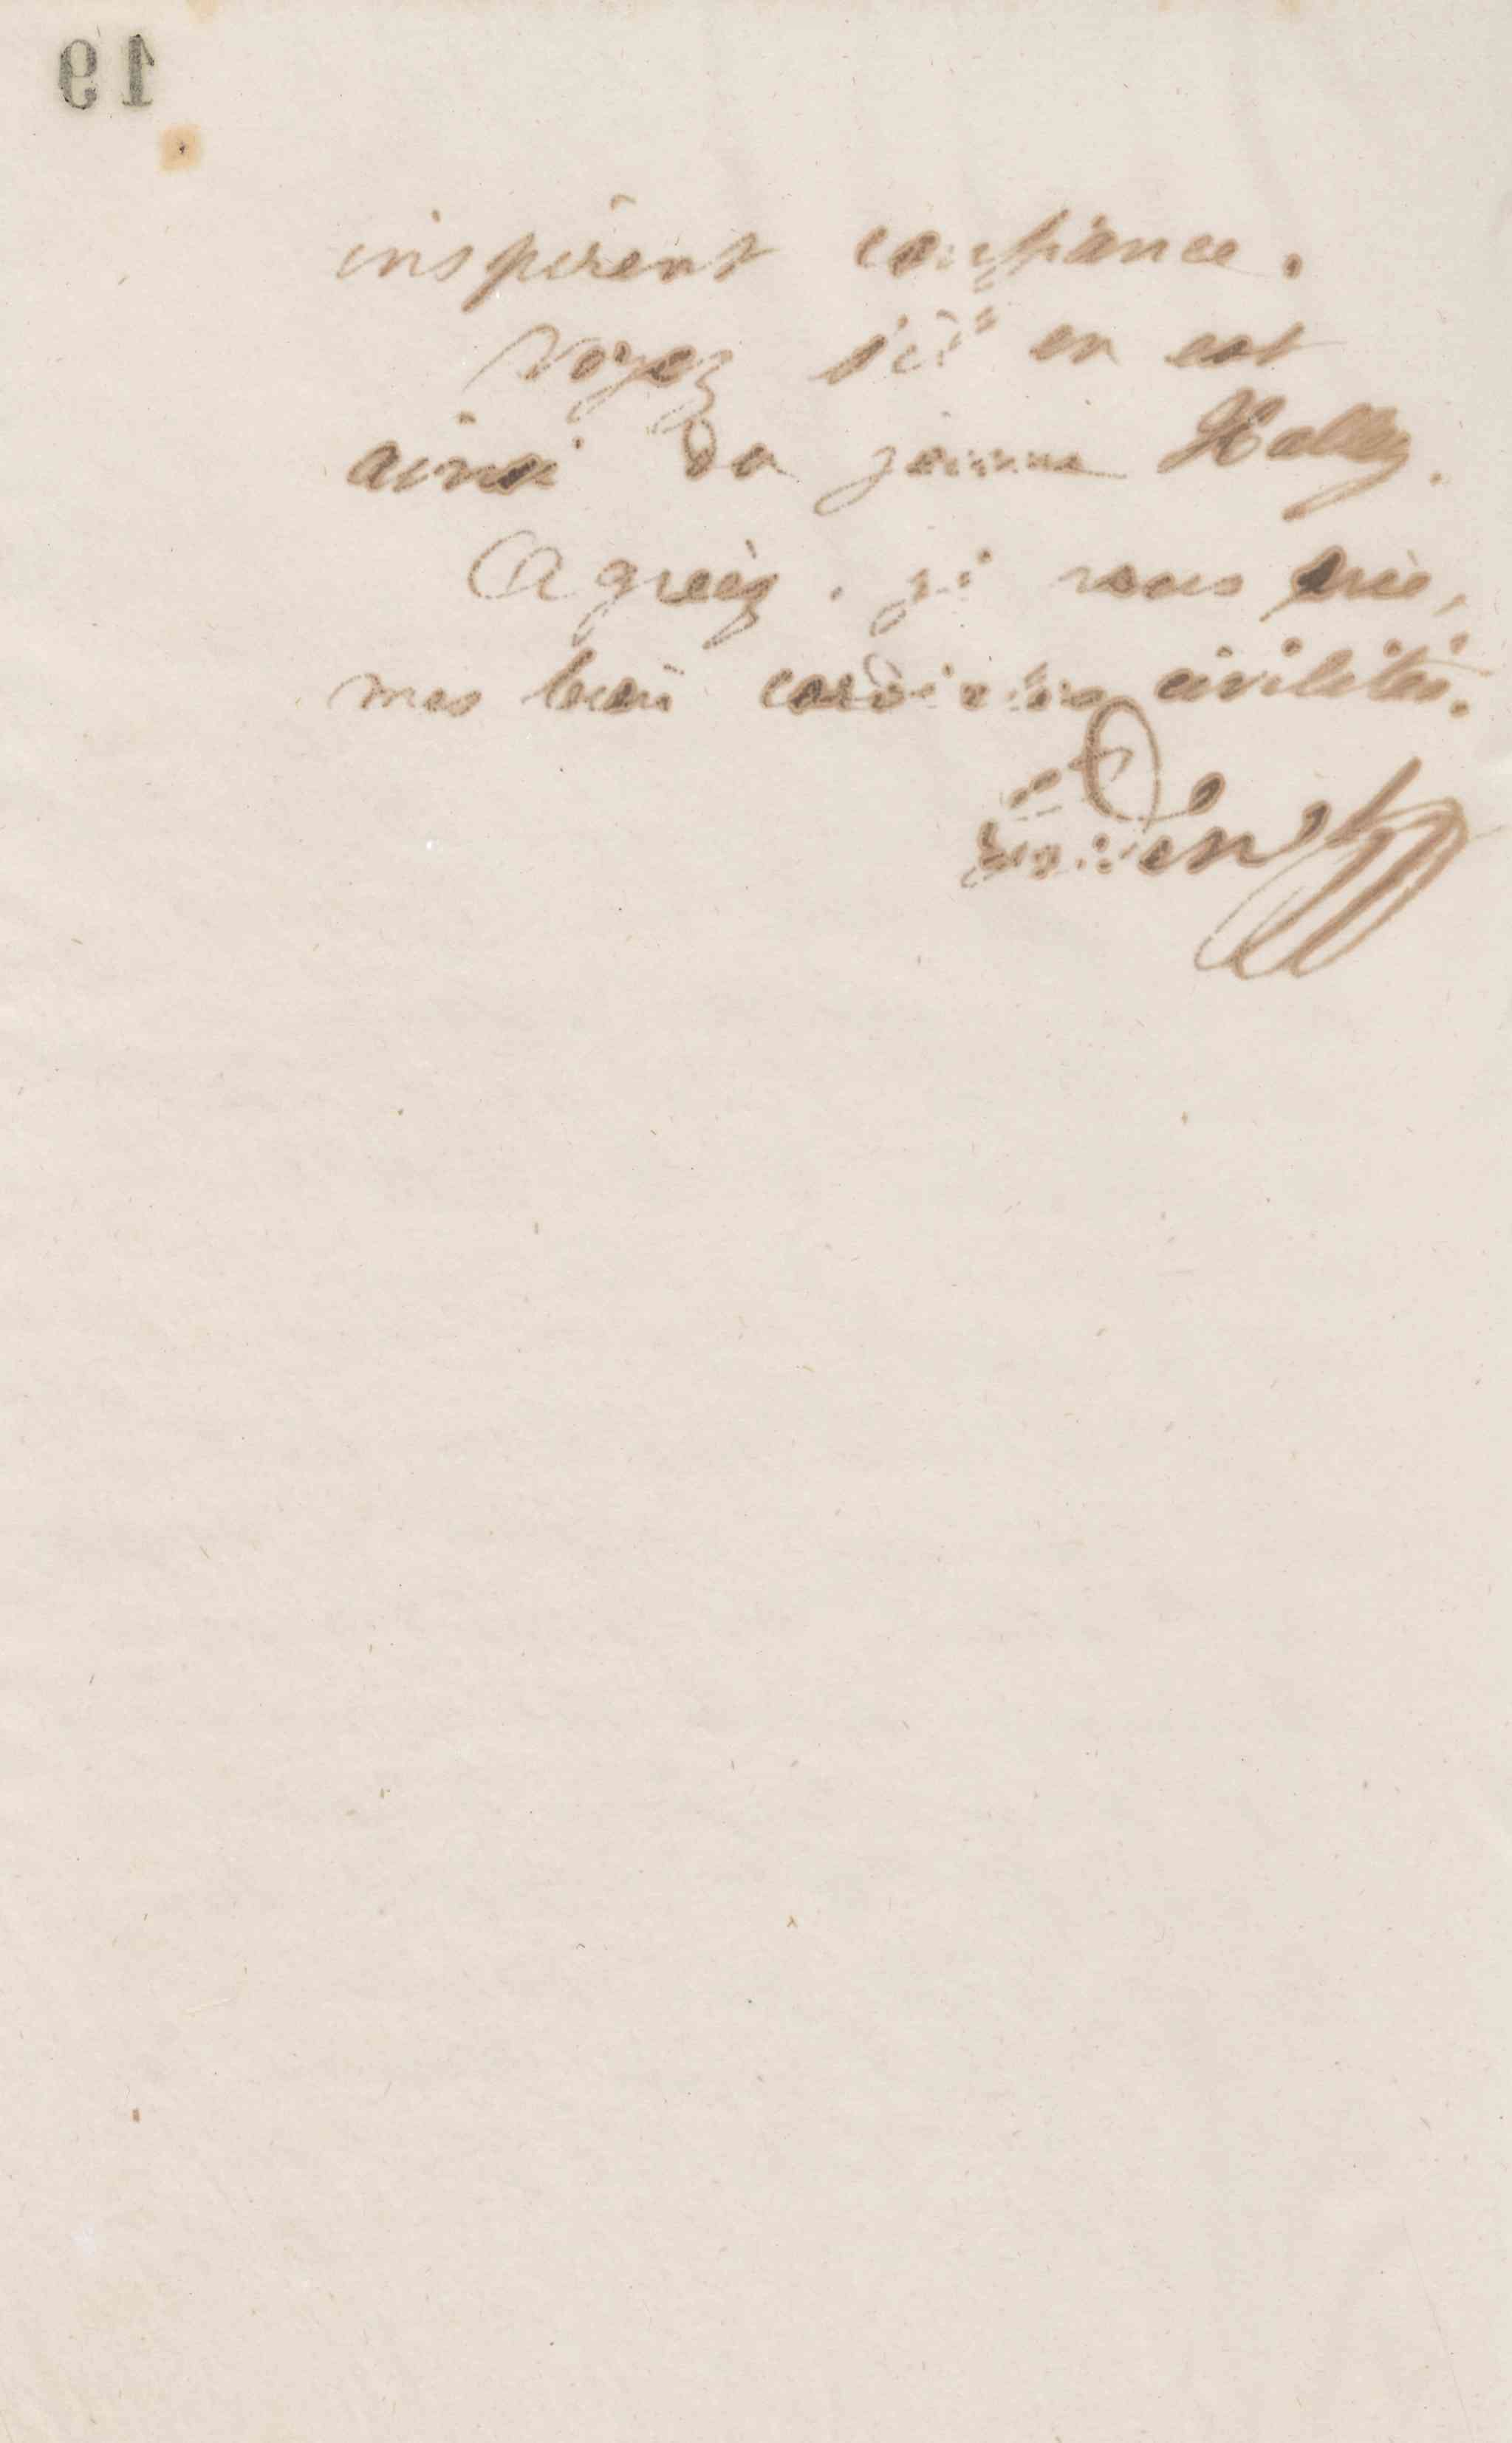 19
inspirent confiance.
Voyez s'il en est
ainsi du jeune Hallez.
Agréez, je vous prie,
mes bien cordiales civilités.
Godin